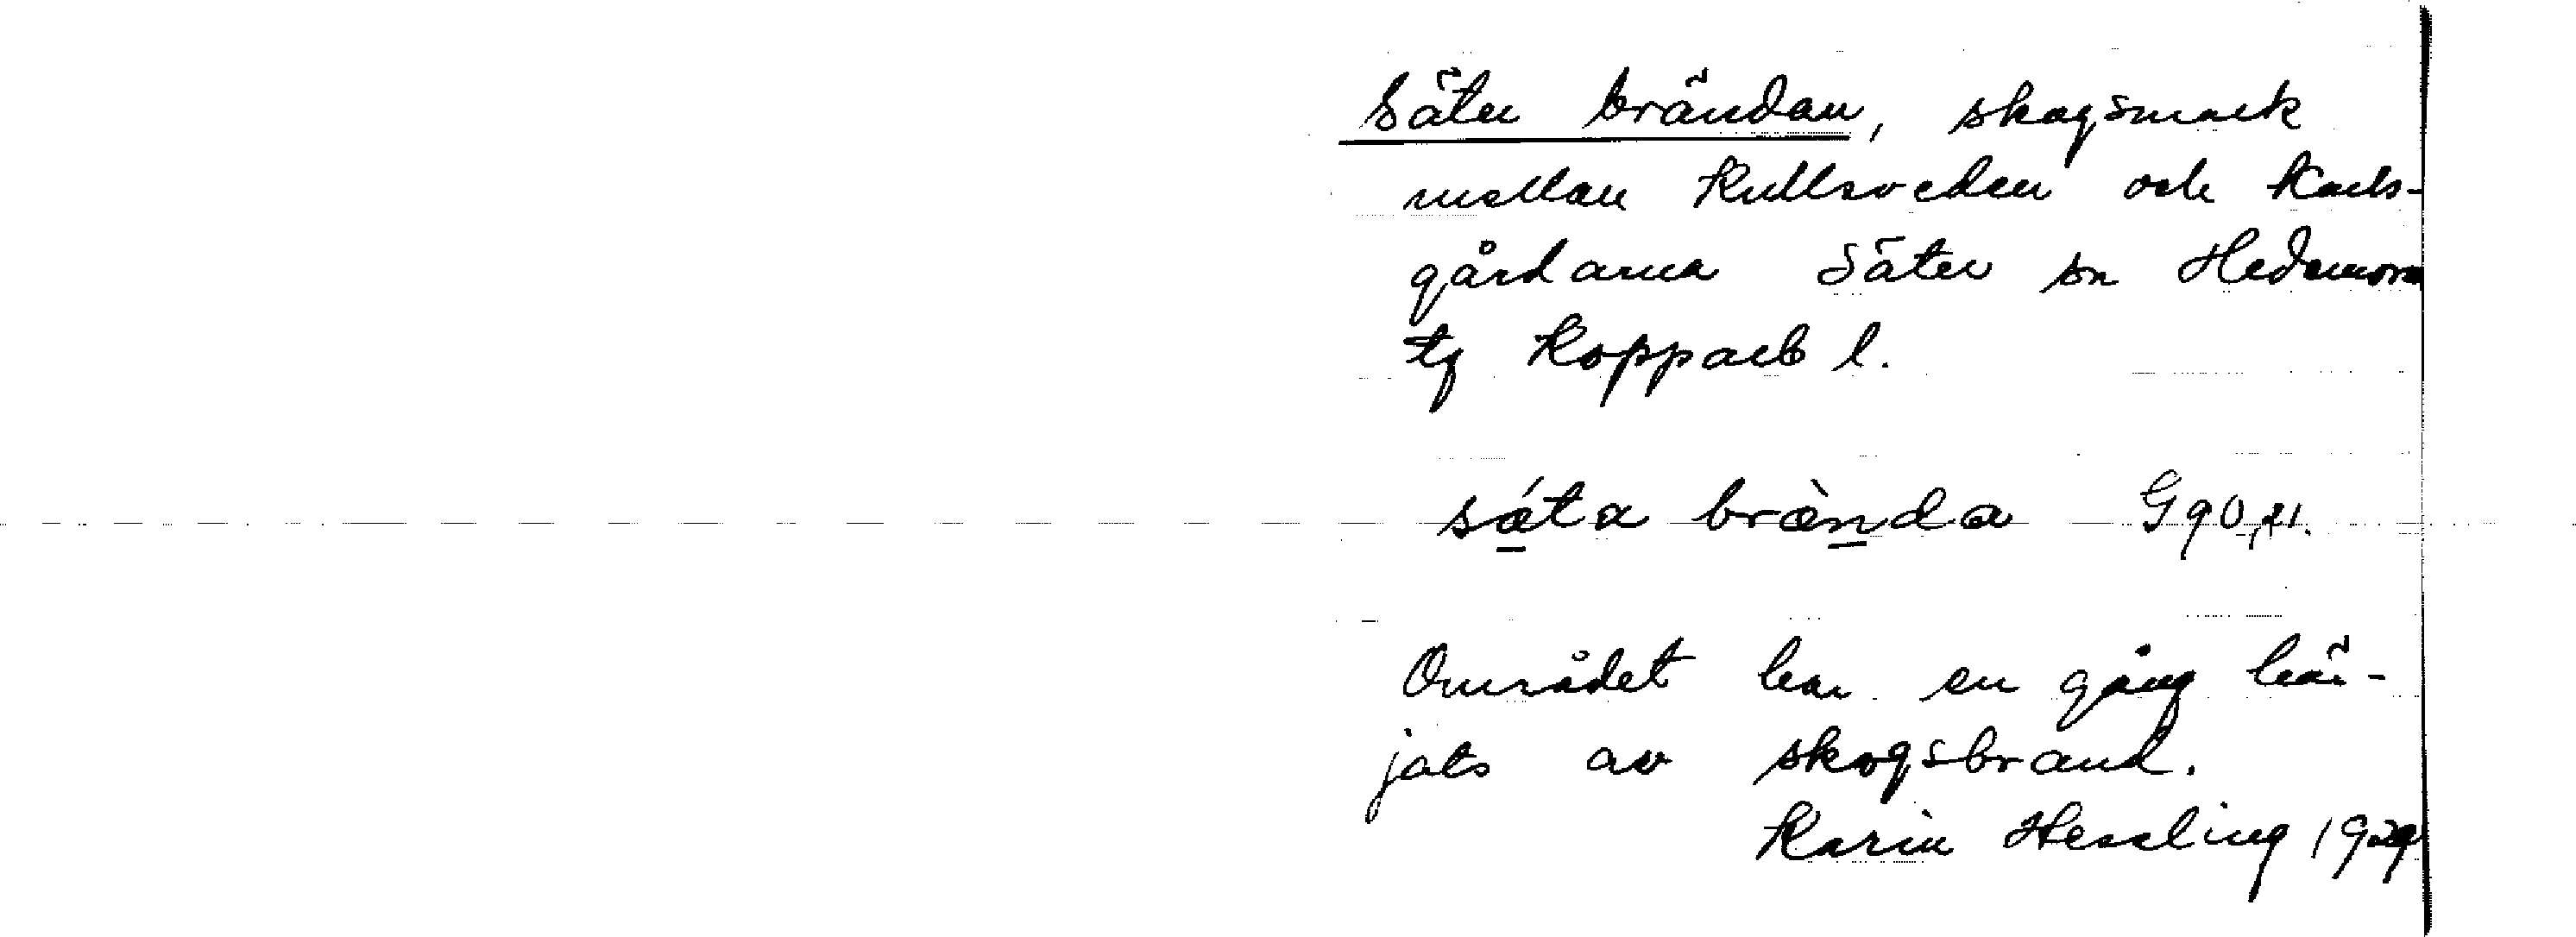 Säter brändan, skogsmark
mellan Kullsveden och Karls-
gårdarna Säter sn Hedemora
tg Kopparb l.
sǽta bræ̀nda G 90, 21.
Området har en gång här-
jats av skogsbrand.
Karin Hessling 1929